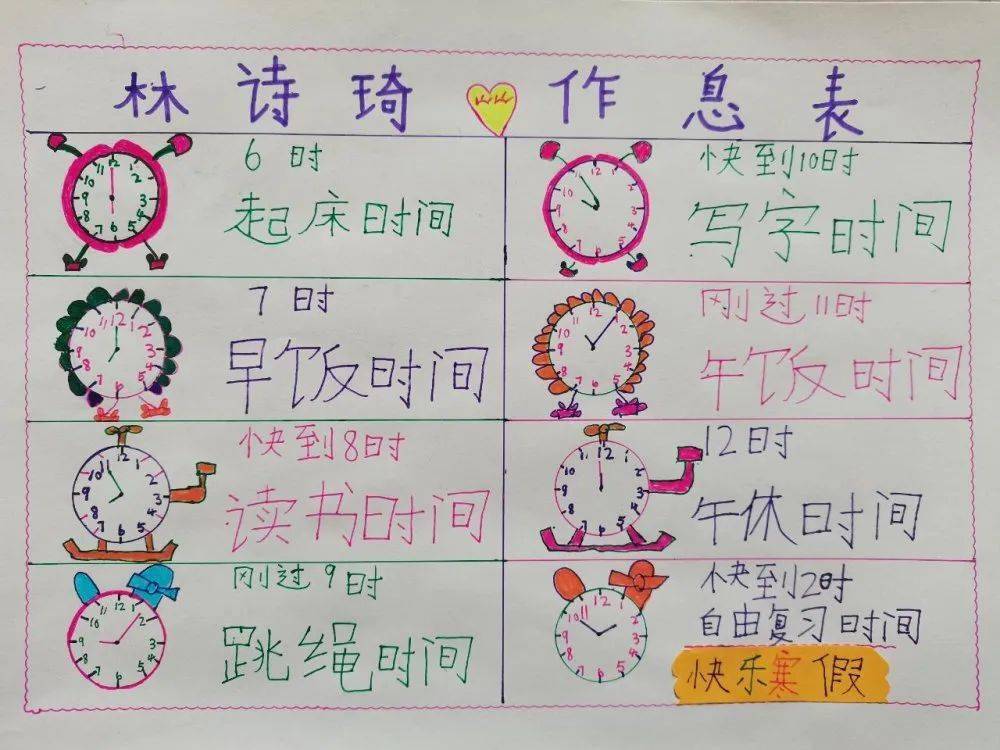 林诗琦 作息表
6时
起床时间
快到10时
写字时间
7时
早饭时间
刚过11时
午饭时间
快到8时
读书时间
12时
午休时间
刚过9时
跳绳时间
快到2时
自由复习时间
快乐寒假